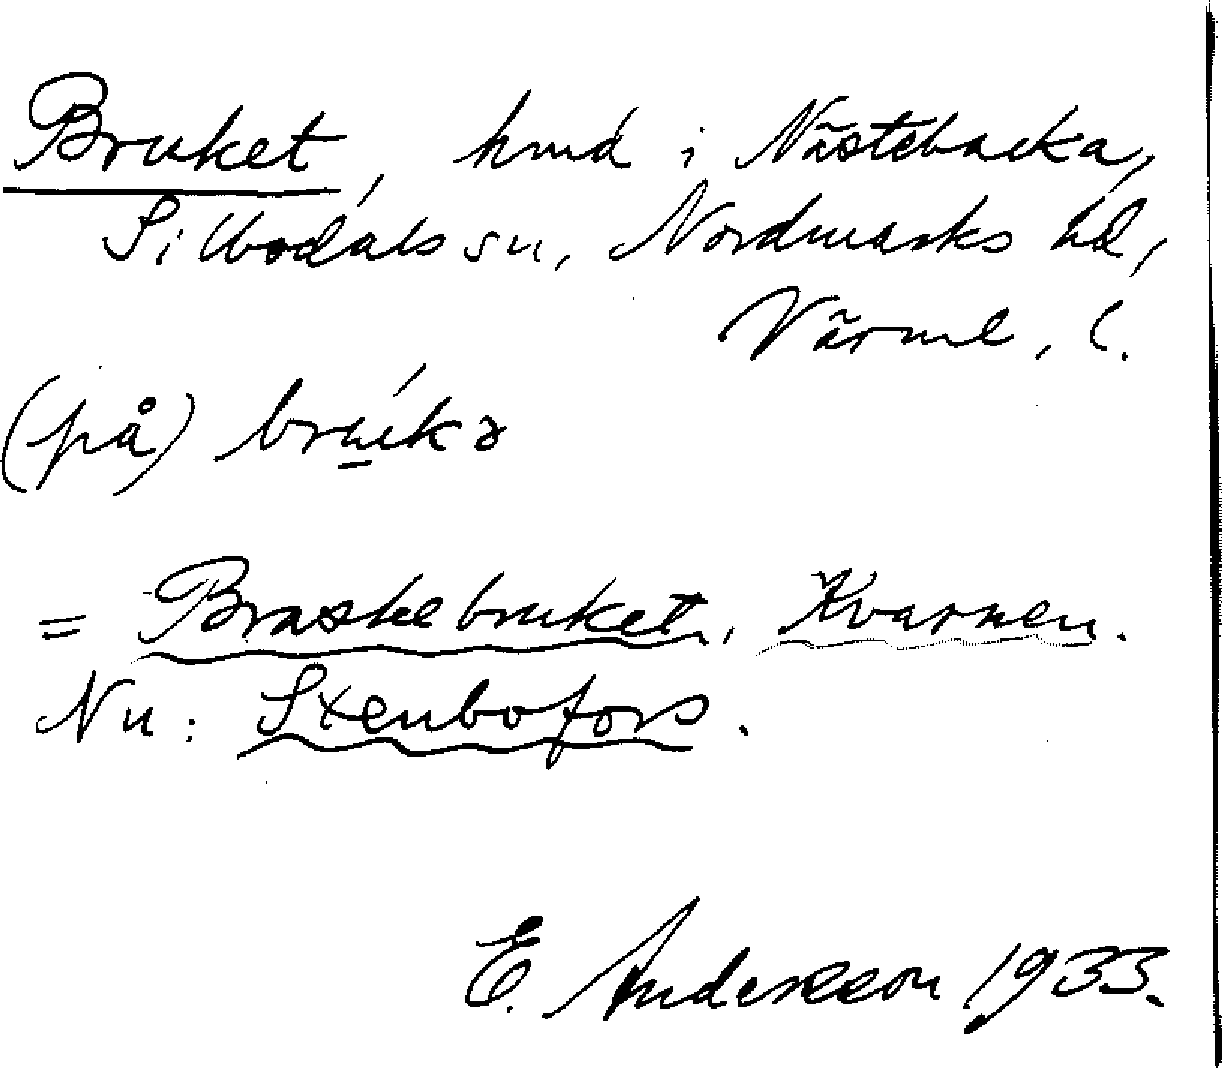 Bruket, hmd i Nästebacka,
Silbodals sn, Nordmarks hd,
Värml. l.
(på) bru̱íkə
= Braskebruket, Kvarnen.
Nu: Stenbofors.
E. Andersson 1933.